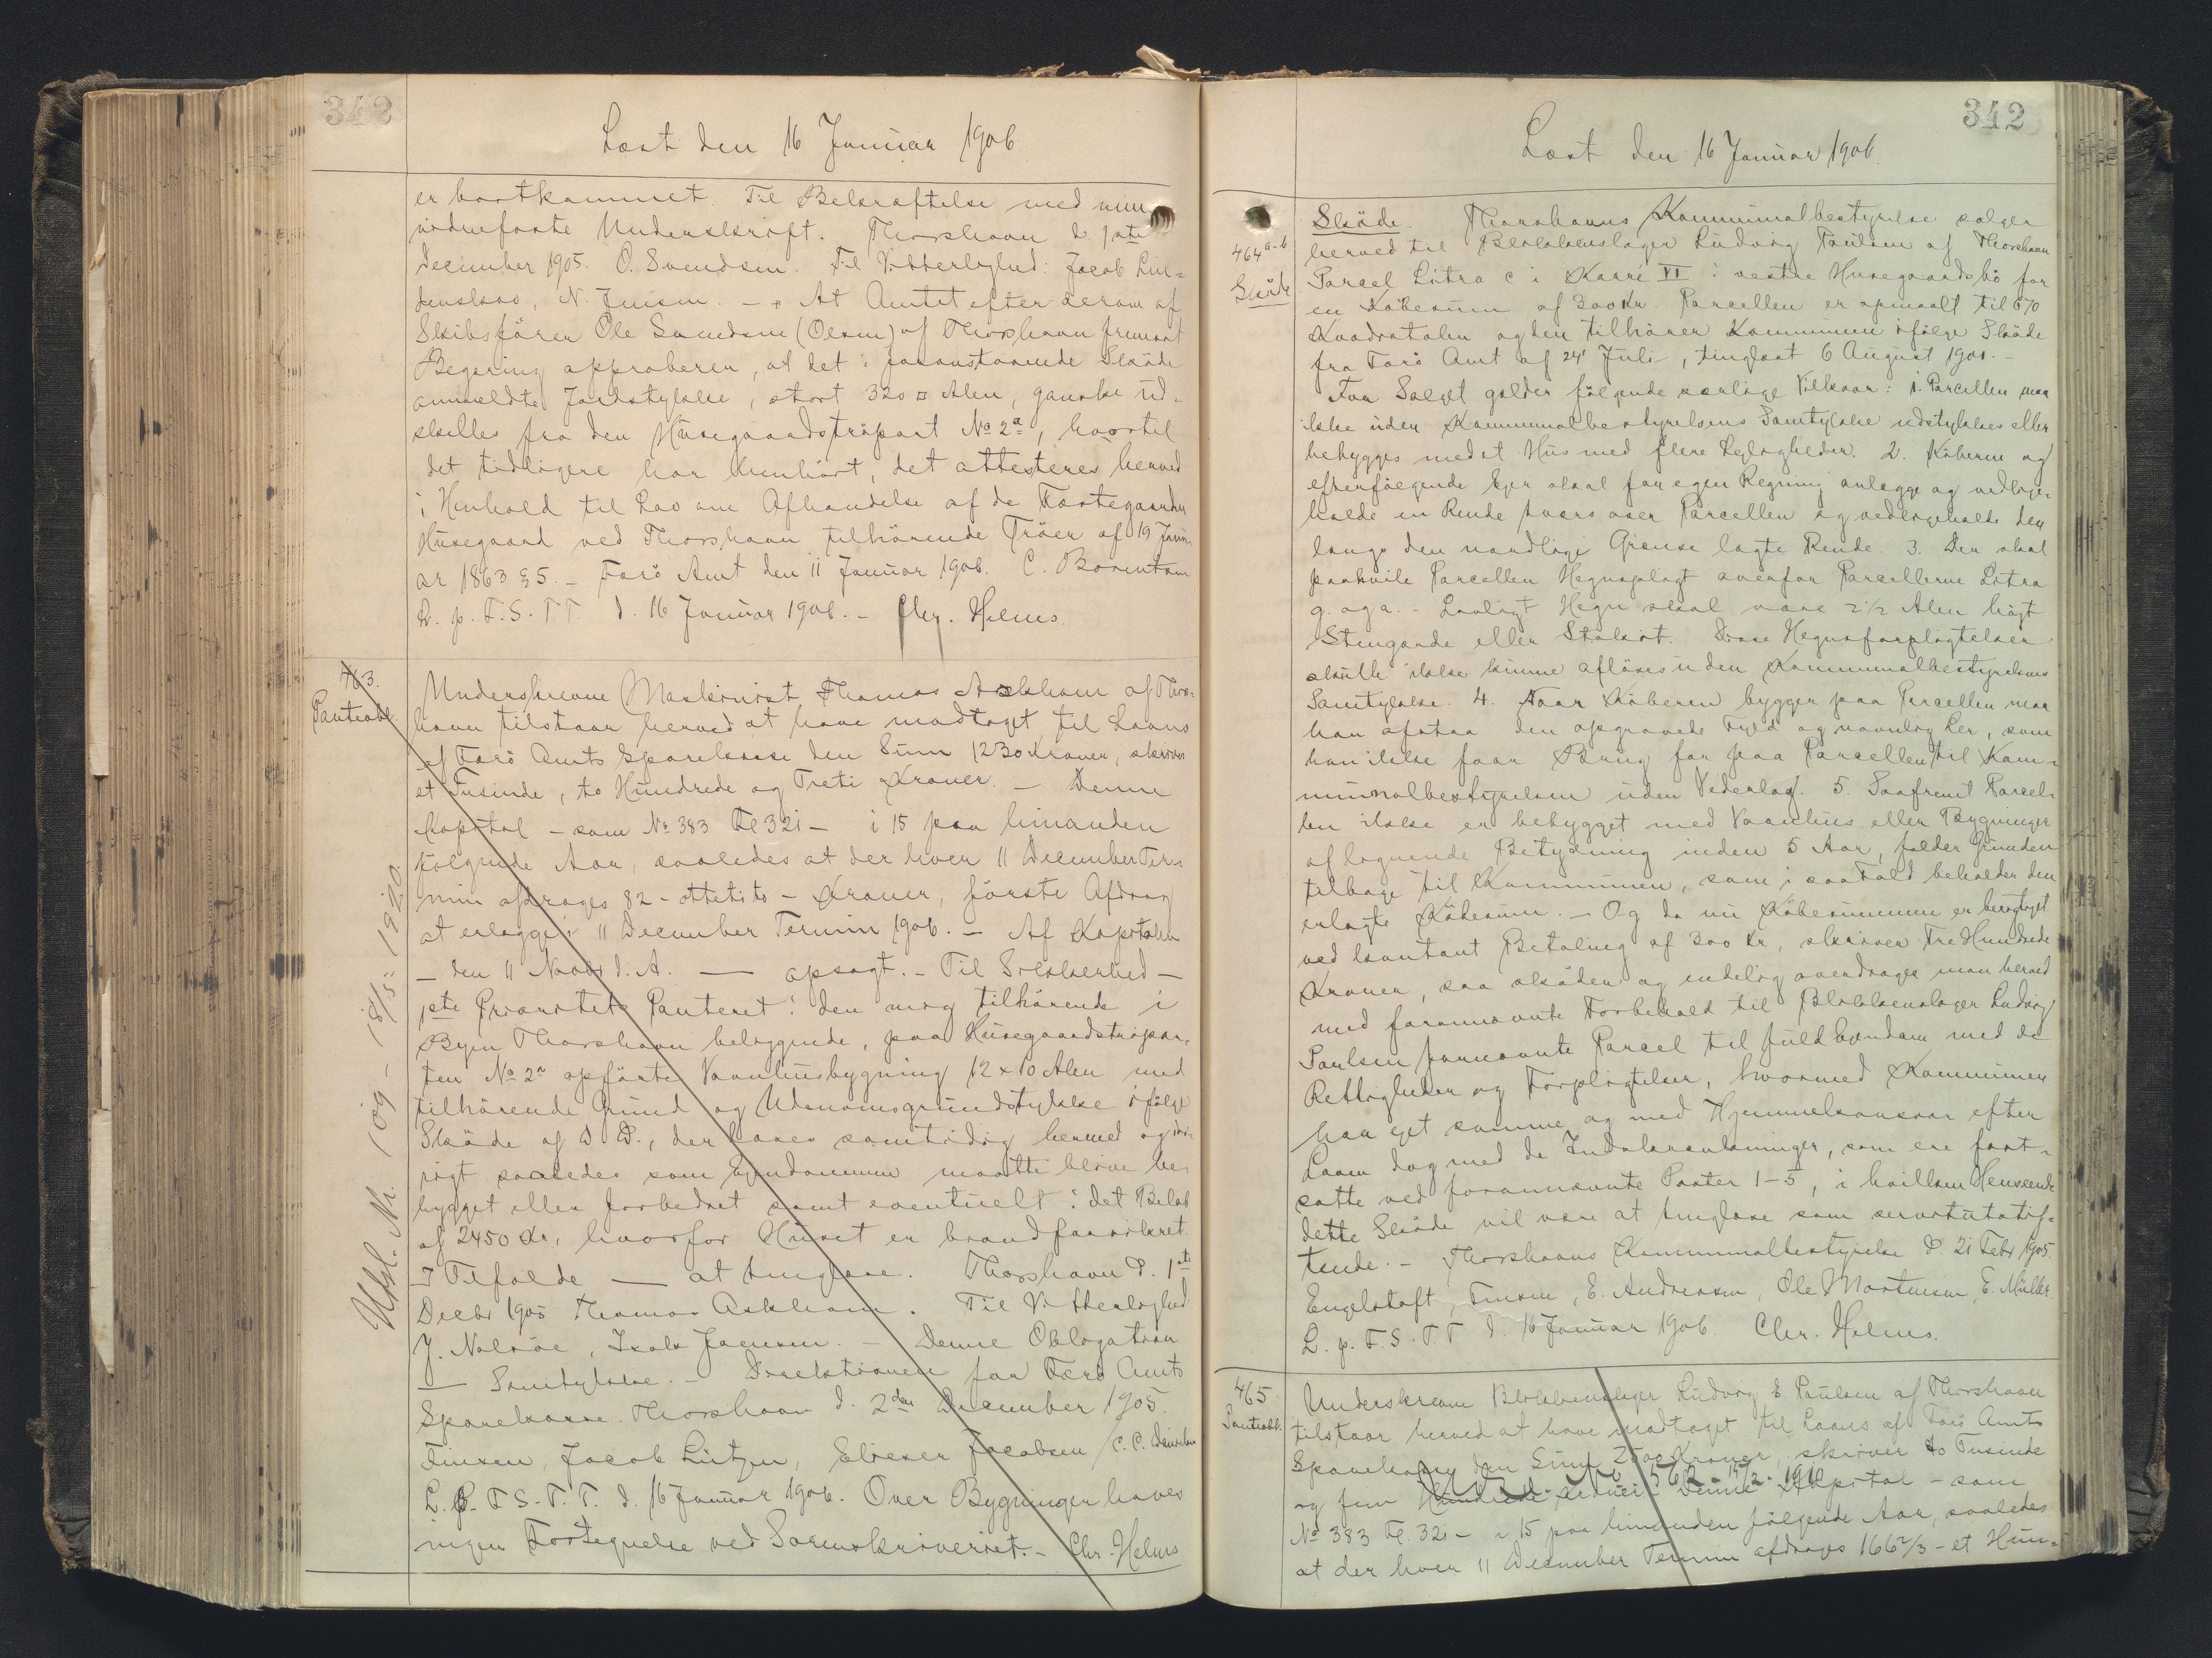 342
Læst den 16 Januar 1906
er bortkommet. Til Bekræftelse med min
vidnefaste Underskrift. Thorshavn d. 1ste
December 1905. O. Svendsen. Til Vitterlighed: Jacob
N. Jensen. — At Amtet efter derom af
Skibsfører Ole Svendsen (Olsen) af Thorshavn fremsat
Begæring approberer, at det i foranstaaende Sköde
anmeldte Jordstykke, stort 320 □ Alen, ganske ud-
skilles fra den Húsegaardströpart No 2a, hvortil
det tidligere har henhört, det attesteres herved
i Henhold til Lov om Afhændelse af de Fæstegaarden
Húsegaard ved Thorshavn tilhörende Tröer af 19 Janu-
ar 1863 § 5. — Færö Amt den 11 Januar 1906. C. Bærentsen
L. p. F. S. T. T. d. 16 Januar 1906. — Chr. Helms.
463.
Panteobl.
Underskrevne Maskinist Thomas Askham af Thors-
havn tilstaar herved at have modtaget til Laans
af Færö Amts Sparekasse den Sum 1230 Kroner, skriver
et Tusinde, to Hundrede og Treti Kroner. — Denne
Kapital — som No 383 Fl 321 — i 15 paa hinanden
fölgende Aar, saaledes at der hver 11 December Ter-
min afdrages 82 — ottetito — Kroner, förste Afdrag
at erlægge i 11 December Termin 1906. — Af Kapitalen
— den 11 Novbr d. A. — opsagt. — Til Sikkerhed —
1ste Prioritets Panteret i den mig tilhörende i
Byen Thorshavn beliggende, paa Húsegaardströpar-
ten No 2a opförte Vaanhúsbygning 12 x 10 Alen med
tilhörende Grund og Udenomsgrundstykke ifölge
Sköde af D. D., der læses samtidig hermed og öv-
rigt saaledes som Ejendommen maatte blive be-
bygget eller forbedret samt eventuelt i det Belöb
af 2450 Kr, hvorfor Húset er brandforsikret.
I Tilfælde — at tinglæse. Thorshavn d. 1ste
Decbr 1905 Thomas Askham. Til Vitterlighed
J. Nolsöe, Isak Jensen. — Denne Obligation
— Samtykke. — Direktionen for Færö Amts
Sparekasse. Thorshavn d. 2den December 1905.
Finsen, Jacob Lützen, Elieser Jacobsen / C. C. Danielsen
L. p. F. S. T. T. d. 16 Januar 1906. Over Bygningen haves
ingen Fortegnelse ved Sorenskriveriet. — Chr. Helms
Udsl. Nr. 109 — 18/5 = 1920.
342
Læst den 16 Januar 1906.
464 a-b
Sköde
Sköde. Thorshavns Kommunalbestyrelse sælger
herved til Blikkenslager Ludvig Paulsen af Thorshavn
Parcel Litra c i Karré VI i vestre Húsegaardsbö for
en Köbesum af 300 Kr. Parcellen er opmaalt til 670
Kvadratalen og den tilhörer Kommunen ifölge Sköde
fra Færö Amt af 24' Juli, tinglæst 6 August 1901. —
For Salget gælder fölgende særlige Vilkaar: 1. Parcellen maa
ikke uden Kommunalbestyrelsens Samtykke udstykkes eller
bebygges med et Hus med flere Lejligheder. 2. Köberen og
efterfölgende Ejer skal for egen Regning anlægge og vedlige-
holde en Rende tværs over Parcellen og vedligeholde den
langs den nordlige Grænse lagte Rende. 3. Der skal
paahvile Parcellen Hegnspligt ovenfor Parcellerne Litra
g. og a. — Lovligt Hegn skal være 2½ Alen höjt
Stengærde eller Stakit. Disse Hegnsforpligtelser
skulle ikke kunne aflöses uden Kommunalbestyrelsens
Samtykke. 4. Naar Köberen bygger paa Parcellen maa
han afstaa den opgravede Fyld og navnlig Ler, som
han ikke faar Brug for paa Parcellen til Kom-
munalbestyrelsen uden Vederlag. 5. Saafremt Parcel-
len ikke er bebygget med Vaanhus eller Bygninger
af lignende Betydning inden 5 Aar, falder Grunden
tilbage til Kommunen, som i saa Fald beholder den
erlagte Köbesum. — Og da nu Köbesummen er berigtiget
ved kontant Betaling af 300 Kr, skriver Tre Hundrede
Kroner, saa sköder og endelig overdrager man herved
med forannævnte Forbehold til Blikkenslager Ludvig
Paulsen fornævnte Parcel til fuld Ejendom med de
Rettigheder og Forpligtelser, hvormed Kommunen
har ejet samme og med Hjemmelsansvar efter
Loven dog med de Indskrænkninger, som ere fast-
satte ved forannævnte Poster 1–5, i hvilken Henseende
dette Sköde vil være at tinglæse som servitutstif-
tende. — Thorshavns Kommunalbestyrelse d. 21 Febr 1905.
Engelstoft, Finsen, E. Andreasen, Ole Mortensen, E. Müller.
L. p. F. S. T. T. d. 16 Januar 1906. Chr. Helms.
465.
Panteobl.
Underskrevne Blikkenslager Ludvig E. Paulsen af Thorshavn
tilstaar herved at have modtaget til Laans af Færö Amts
Sparekasse den Sum 2500 Kroner, skriver to Tusinde
og fem Hundrede Kroner. Denne Kapital — som
No 383 Fl. 321 — i 15 paa hinanden fölgende Aar, saaledes
at der hver 11 December Termin afdrages 166 2/3 — et Hun-